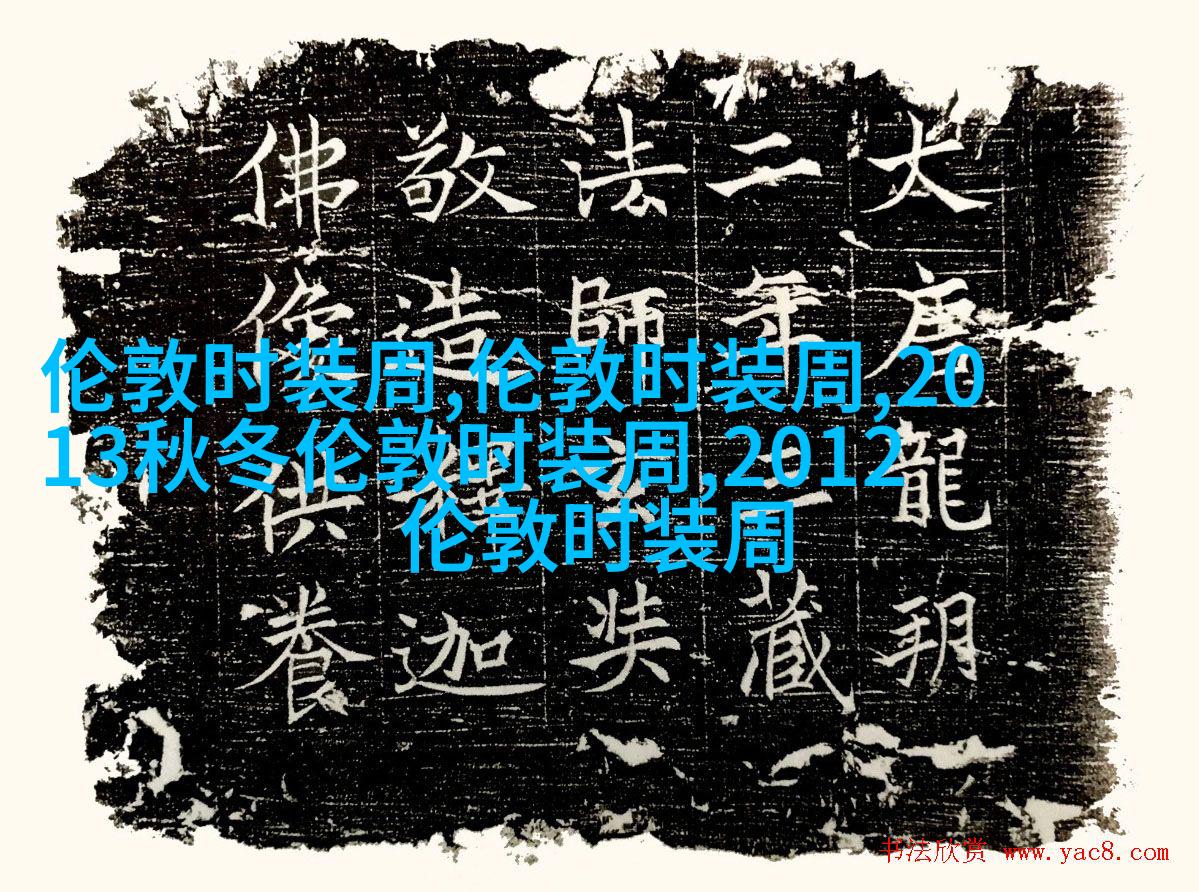 大唐龍朔
二年三藏
法師玄奘
敬造釋迦
佛像供養
伦敦时装周,伦敦时装周,20
13秋冬伦敦时装周,2012
伦敦时装周
书法欣赏 www.yac8.com